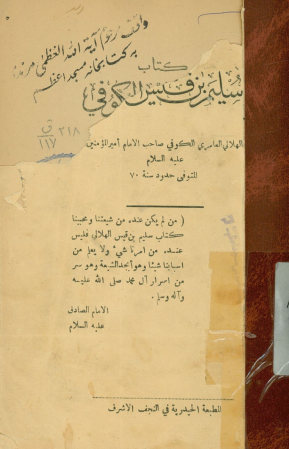 واقف مرحوم آية الله العظمى
به کتابخانه مسجد اعظم
كتاب
سليم بن قيس الكوفي
ق ٢١٨
١١٧
الهلالي العامري الكوفي صاحب الامام أمير المؤمنين
عليه السلام
المتوفى حدود سنة ٧٠
( من لم يكن عنده من شيعتنا ومحبينا
كتاب سليم بن قيس الهلالي فليس
عنده من أمرنا شيء ولا يعلم من
اسبابنا شيئا وهو أبجد الشيعة وهو سر
من اسرار آل محمد صلى الله عليه
وآله وسلم .
الامام الصادق
عليه السلام
المطبعة الحيدرية في النجف الاشرف